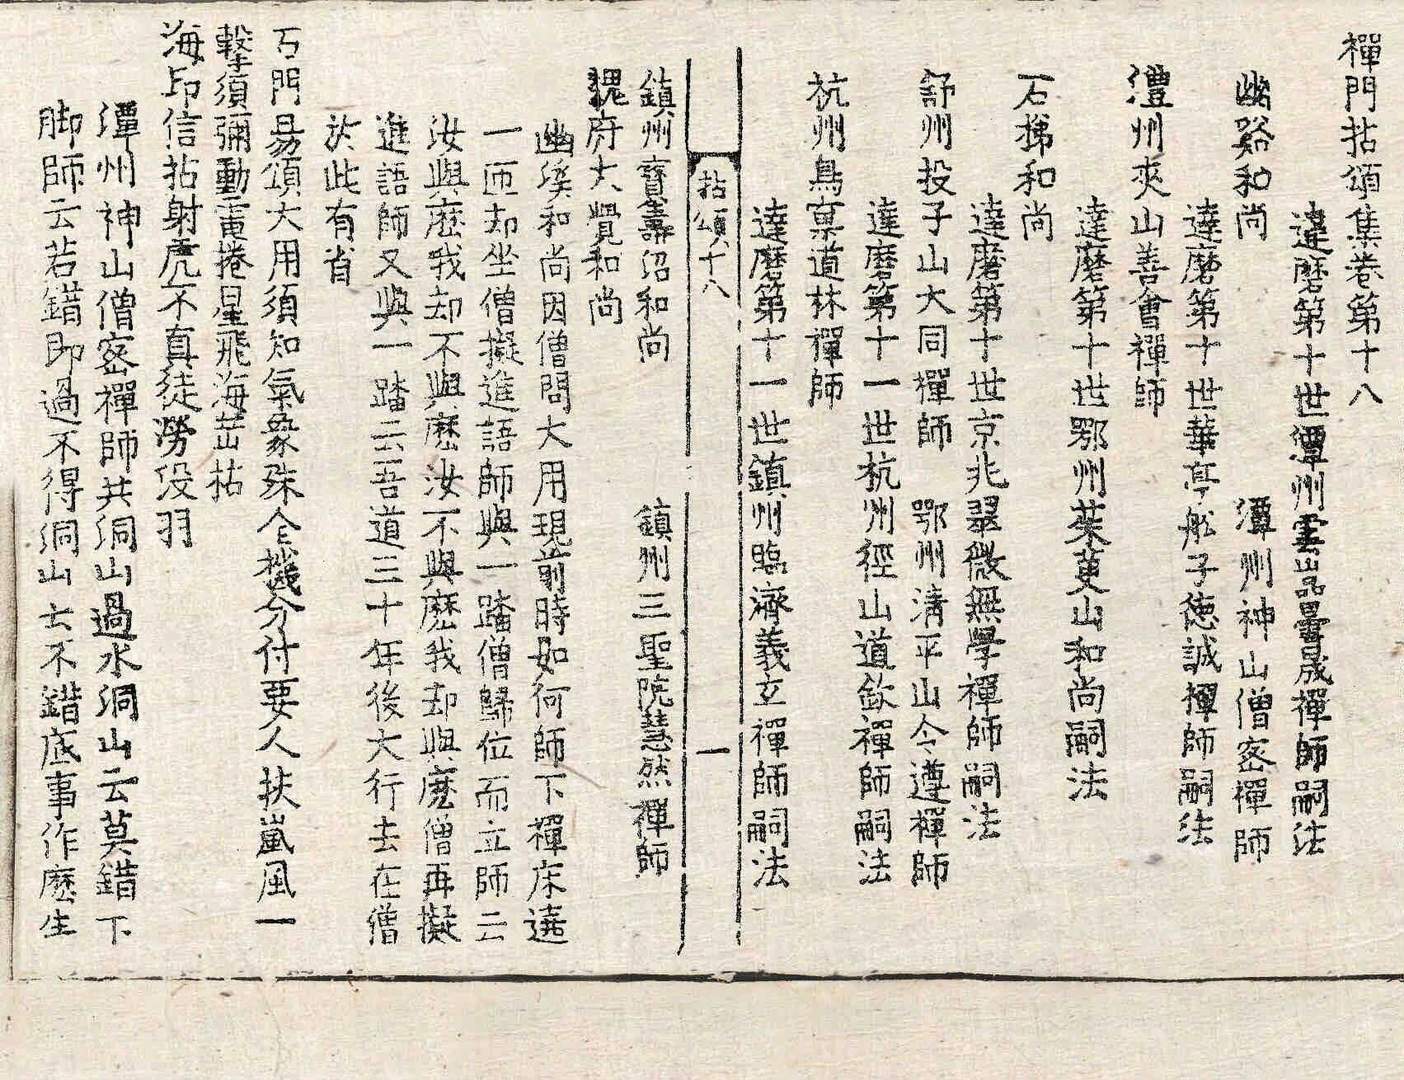 禪門拈頌集卷第十八
達磨第十世潭州雲嵓曇晟禪師嗣法
幽谿和尚　潭州神山僧密禪師
達磨第十世華亭舩子德誠禪師嗣法
澧州夾山善會禪師
達磨第十世鄂州茱萸山和尚嗣法
石梯和尚
達磨第十世京兆翠微無學禪師嗣法
舒州投子山大同禪師　鄂州淸平山令遵禪師
達磨第十一世杭州徑山道欽禪師嗣法
杭州鳥窠道林禪師
達磨第十一世鎭州臨濟義玄禪師嗣法
拈頌十八　一
鎭州寶壽沼和尚　鎭州三聖院慧然禪師
魏府大覺和尚
幽溪和尚因僧問大用現前時如何師下禪床遶
一匝却坐僧擬進語師與一踏僧歸位而立師云
汝與麽我却不與麽汝不與麽我却與麽僧再擬
進語師又與一踏云吾道三十年後大行去在僧
於此有省
石門易頌大用須知氣象殊全機分付要人扶嵐風一
擊須彌動電捲星飛海岳枯
海印信拈射虎不真徒勞沒羽
潭州神山僧密禪師共洞山過水洞山云莫錯下
脚師云若錯即過不得洞山云不錯底事作麽生